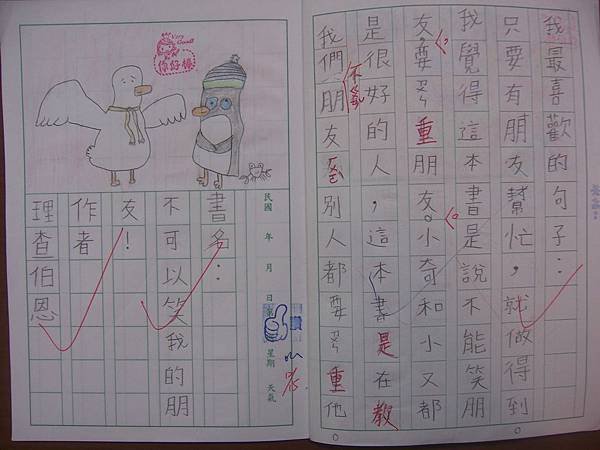 我最喜歡的句子：
只要有朋友幫忙，就做得到
我覺得這本書是說不能笑朋
友。要ㄗㄨㄣ重朋友。小奇和小又都
是很好的人，這本書是在教
我們朋友別人都要ㄗㄨㄣ重他
民國 年 月 日 星期 天氣
讚
書名：
不可以笑我的朋
友！
作者
理查伯恩
Very Good!
你好棒